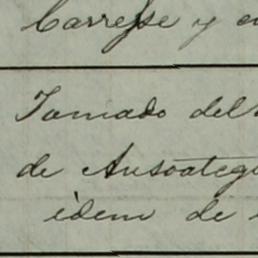 Carresse y
Tomado del
de Ansoategu
idem de